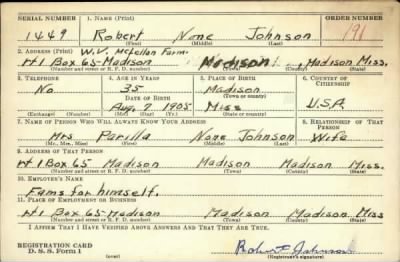 SERIAL NUMBER 1. NAME (Print) ORDER NUMBER
1449 Robert None Johnson 191
(First) (Middle) (Last)
2. ADDRESS (Print) W.V. McLellan Farm.
Rt 1 Box 65-Madison Madison, Madison Miss.
(Number and street or R. F. D. number) (Town) (County) (State)
3. TELEPHONE 4. AGE IN YEARS 5. PLACE OF BIRTH 6. COUNTRY OF CITIZENSHIP
No 35 Madison
DATE OF BIRTH (Town or county)
Aug. 7 1905 Miss U.S.A.
(Exchange) (Number) (Mo.) (Day) (Yr.) (State or country)
7. NAME OF PERSON WHO WILL ALWAYS KNOW YOUR ADDRESS 8. RELATIONSHIP OF THAT PERSON
Mrs Parilla None Johnson Wife
(Mr., Mrs., Miss) (First) (Middle) (Last)
9. ADDRESS OF THAT PERSON
Rt 1 Box 65 Madison Madison Madison Miss.
(Number and street or R. F. D. number) (Town) (County) (State)
10. EMPLOYER'S NAME
Fams for himself.
11. PLACE OF EMPLOYMENT OR BUSINESS
Rt 1 Box 65-Madison Madison Madison Miss
(Number and street or R. F. D. number) (Town) (County) (State)
I AFFIRM THAT I HAVE VERIFIED ABOVE ANSWERS AND THAT THEY ARE TRUE.
REGISTRATION CARD
D. S. S. FORM 1 Robert Johnson
(over) (Registrant's signature)